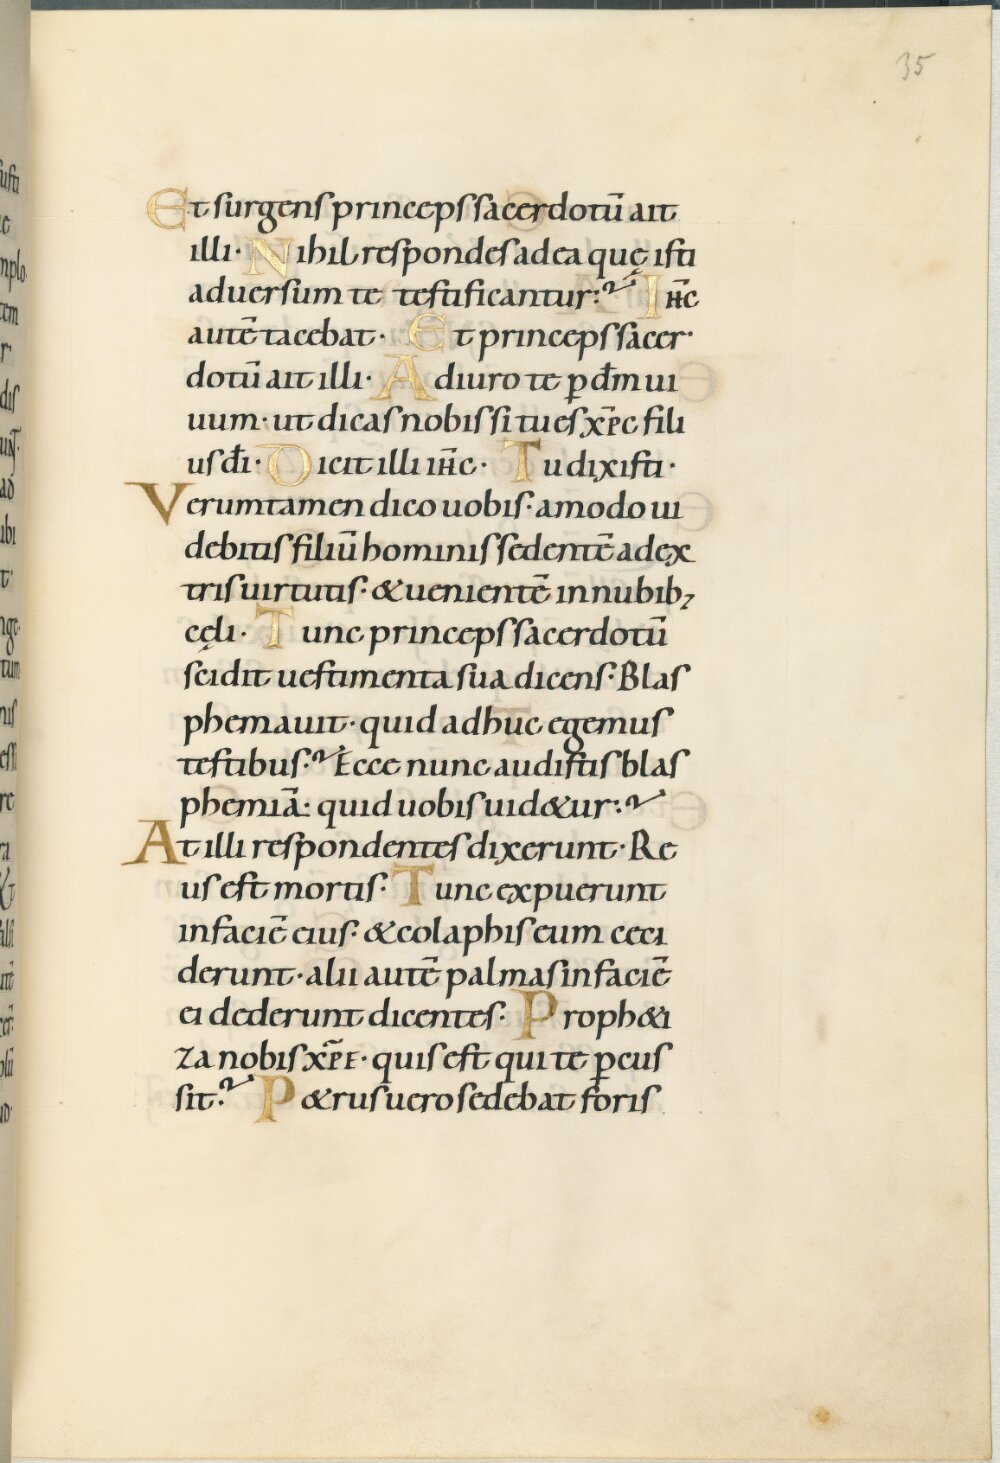 35
Et surgens princeps sacerdotū ait
illi· Nihil respondes ad ea quę isti
aduersum te testificantur? Iħc
autē tacebat· Et princeps sacer·
dotū ait illi· Adiuro te ꝑ dm̄ ui
uum· ut dicas nobis si tu es xp̄c fili
us dī· Dicit illi iħc· Tu dixisti·
Verumtamen dico uobis· amodo ui
debitis filiū hominis sedentē ad ex
tris uirtutis· & uenientē in nubib;
cęli· Tunc princeps sacerdotū
scidit uestimenta sua dicens· Blas
phemauit· quid adhuc egemus
testibus? Ecce nunc audistis blas
phemiā· quid uobis uid&ur?
At illi respondentes dixerunt· Re
us est mortis· Tunc expuerunt
in faciē eius· & colaphis eum ceci
derunt· alii autē palmas in faciē
ei dederunt dicentes· Proph&i
za nobis xp̄e· quis est qui te ꝑcus
sit? P&rus uero sedebat foris